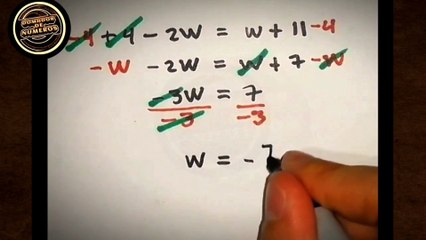 DOMADOR
DE
NUMEROS
-4 + 4 - 2W = W + 11 - 4
-W - 2W = W + 7 - W
-3W = 7
-3 -3
W = - 7